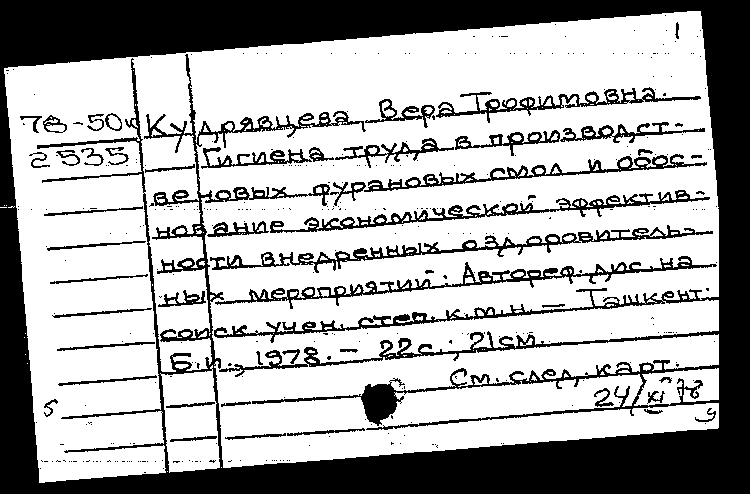 1
78-50к Кудрявцева, Вера Трофимовна.
2535 Гигиена труда в производст-
ве новых фурановых смол и обос-
нование экономической эффектив-
ности внедренных оздоровитель-
ных мероприятий: Автореф. дис. на
соиск. учен. степ. к.м.н. — Ташкент:
Б.и., 1978. - 22с.; 21см.
См. след. карт.
5 24/XI 78